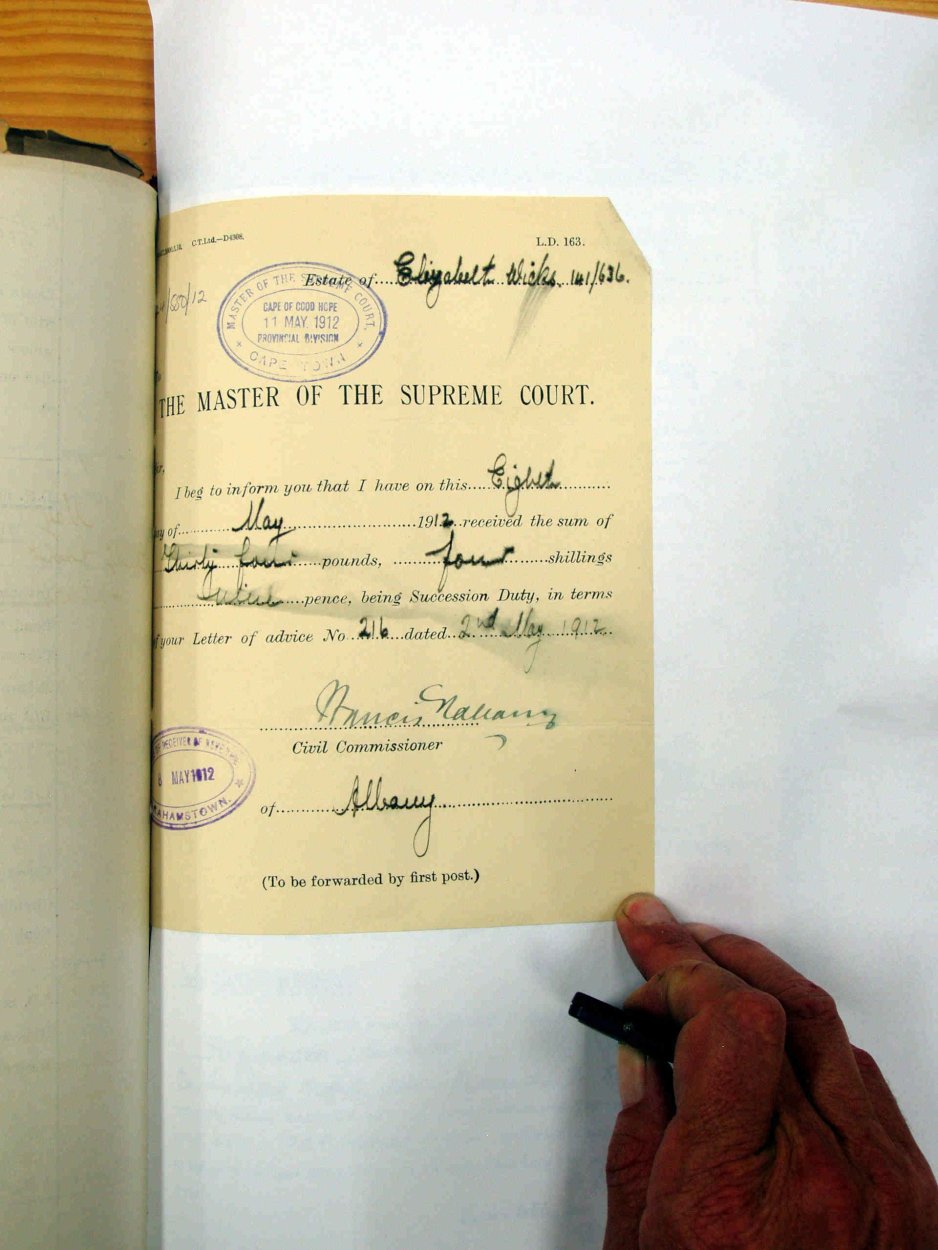 C.T.Ltd.—D4308.
L.D. 163.
Estate of Elizabeth Wicks 141/636.
/680/12
MASTER OF THE SUPREME COURT,
CAPE OF GOOD HOPE
11 MAY. 1912
PROVINCIAL DIVISION
CAPE TOWN
THE MASTER OF THE SUPREME COURT.
I beg to inform you that I have on this Eighth
of May 1912 received the sum of
Thirty four pounds, four shillings
pence, being Succession Duty, in terms
of your Letter of advice No 216 dated 2nd May 1912
Francis
Civil Commissioner
RECEIVER OF REVENUE
8 MAY 1912
AHAMSTOWN.
of Albany
(To be forwarded by first post.)